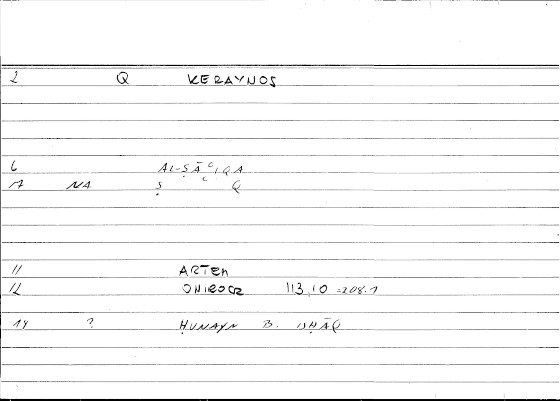 2 Q KERAYNOS
6 AL-ṢĀʿIQA
A NA Ṣ ʿ Q
11 ARTEM
12 ONIROCR 113,10 =208.1
14 ? ḤUNAYN B. ISḤĀQ